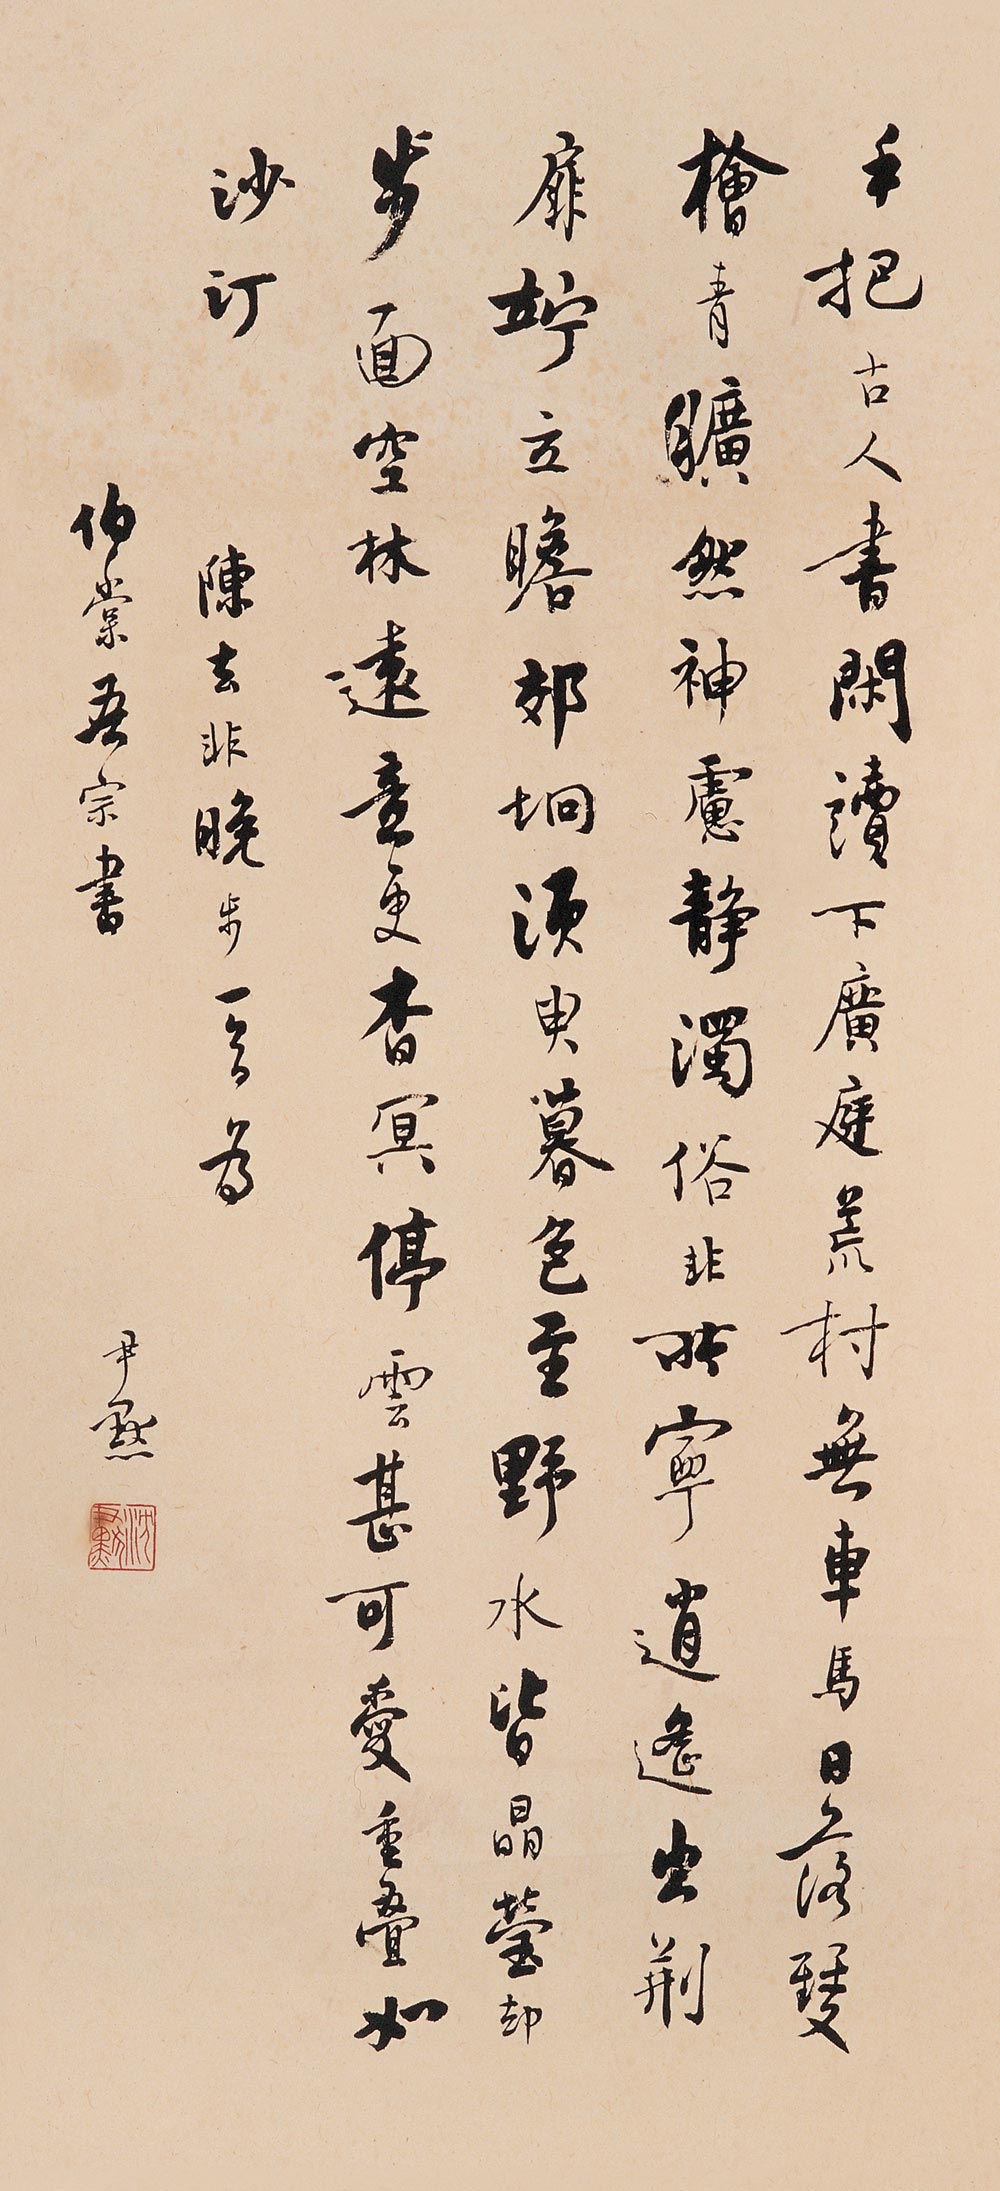 手把古人書閑讀下廣庭荒村無車馬日落雙
檜青曠然神慮静濁俗非所寧逍遙出荆
扉竚立瞻郊坰須臾暮色至野水皆晶瑩却
步面空林遠意更杳冥停雲甚可愛重疊如
沙汀
陳去非晚步一首為
伯棠吾宗書
尹默
沈尹默